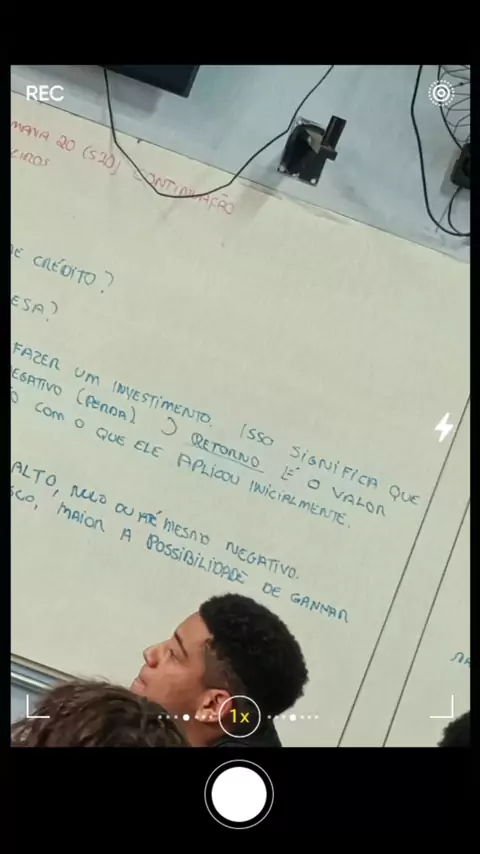 REC
MANA 20 (S20) CONTINUAÇÃO
EIROS
DE CRÉDITO?
ESA?
FAZER UM INVESTIMENTO. ISSO SIGNIFICA QUE
EGATIVO (PERDA) O RETORNO É O VALOR
O COM O QUE ELE APLICOU INICIALMENTE.
ALTO, NULO OU ATÉ MESMO NEGATIVO.
SCO, MAIOR A POSSIBILIDADE DE GANHAR
1x